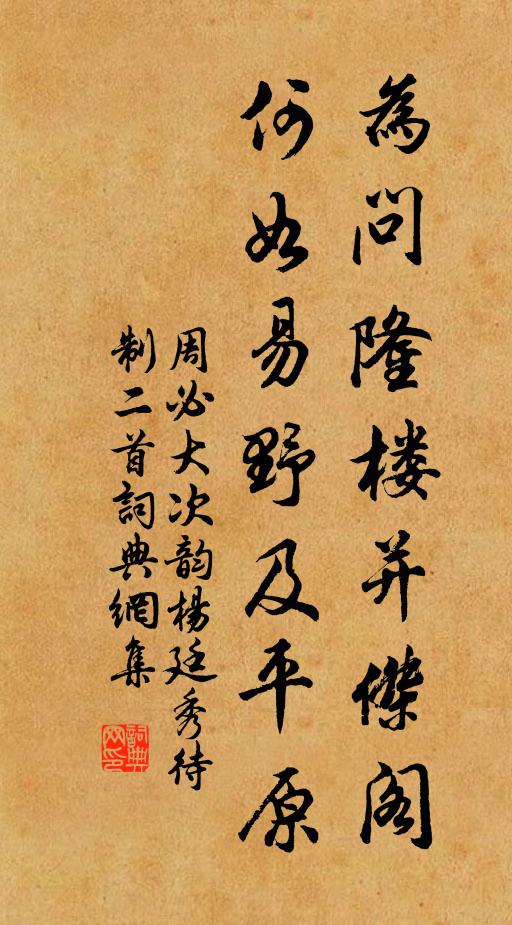 為問隆楼并傑阁
何如易野及平原
周必大次韵楊廷秀待
制二首詞典網集
詞典网印